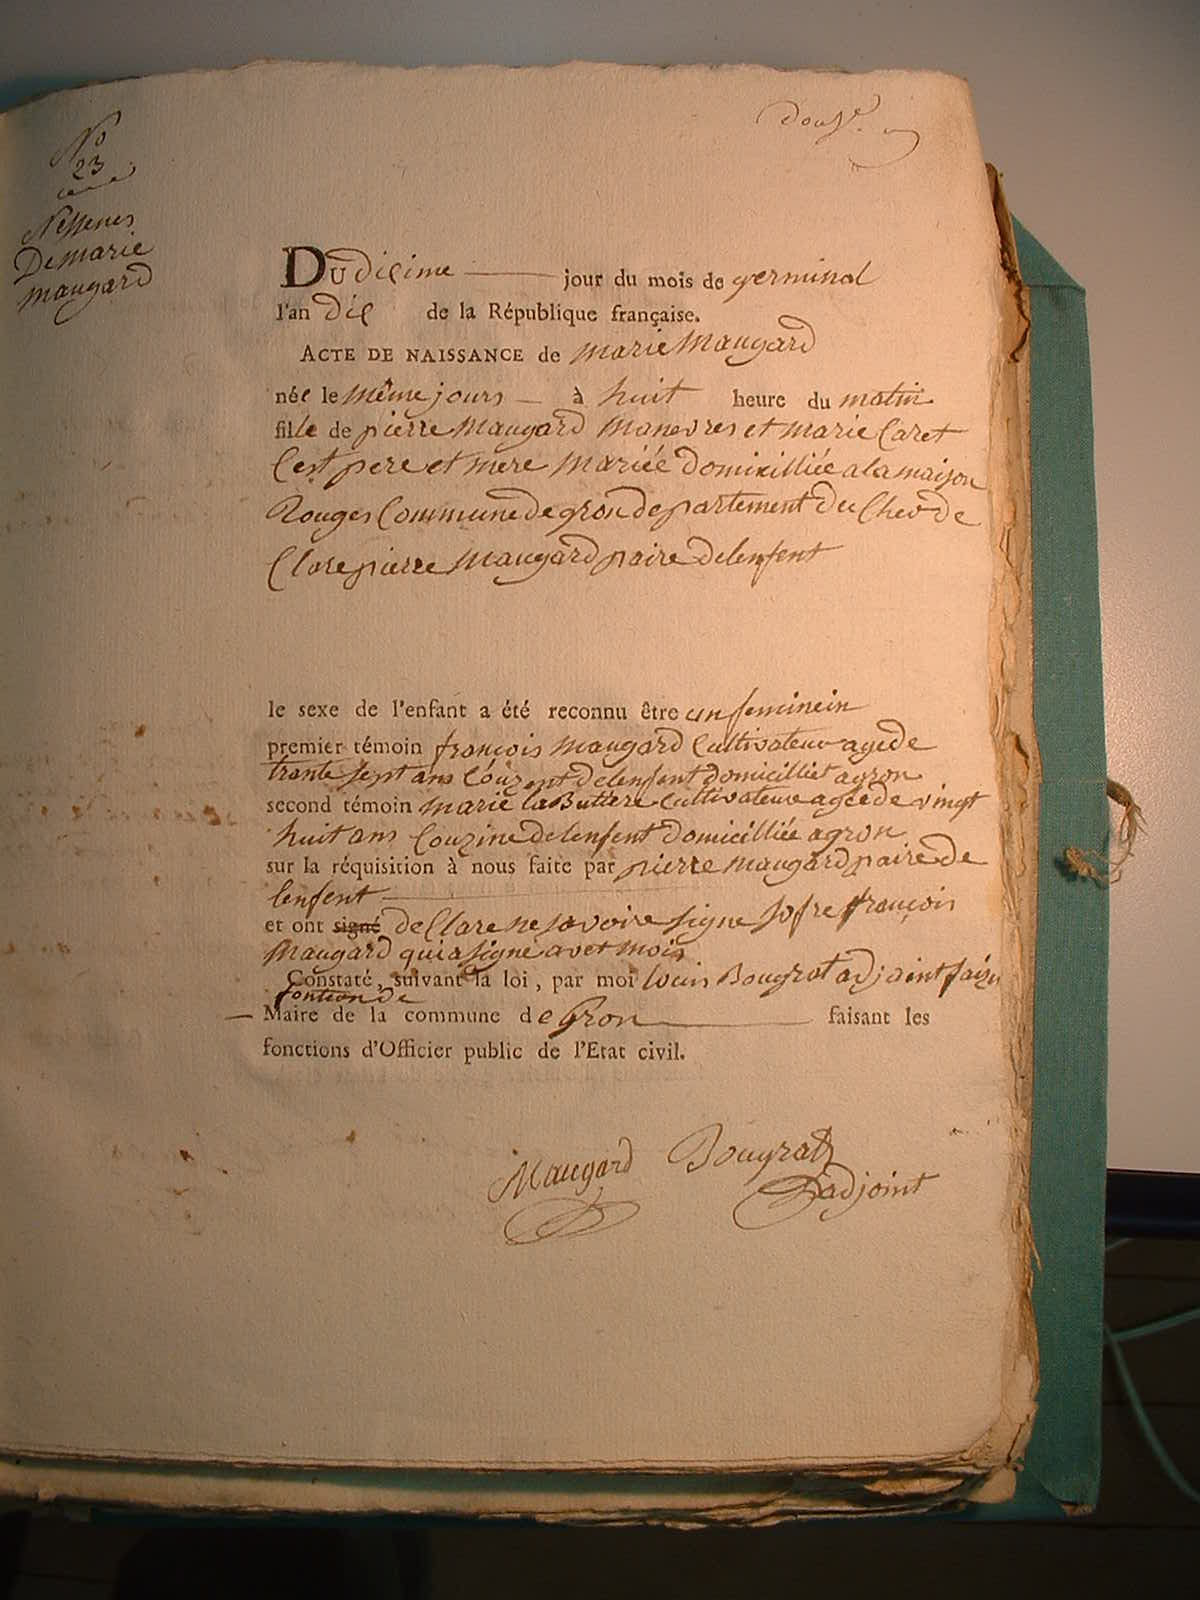 Douse
No
23
Nessenes
De marie
maugard
Du dicime jour du mois de germinal
l'an dic de la République française.
ACTE DE NAISSANCE de marie Maugard
née le même jours à huit heure du matin
fille de pierre Maugard Manevres et marie Caret
Cest pere et mere Mariée Domixilliée a la maison
Rouges Commune de gron departement du Cher de
Clare pierre Maugard paire de lenfent
le sexe de l'enfant a été reconnu être un feminein
premier témoin françois Maugard Cultivateur age de
trante sept ans Couzent de lenfent domicilliet a gron
second témoin marie la Buttere Cultivateure agée de vingt
huit ans Couzine de lenfent Domicilliée a gron
sur la réquisition à nous faite par pierre maugard paire de
lenfent
et ont signé de Clare ne savoire signe sofre françois
Maugard qui a signé avet mois
Constaté, suivant la loi, par moi louis Bougrat adjoint faizn
fontion de
Maire de la commune de Gron faisant les
fonctions d'Officier public de l'Etat civil.
Maugard Bougrat
adjoint